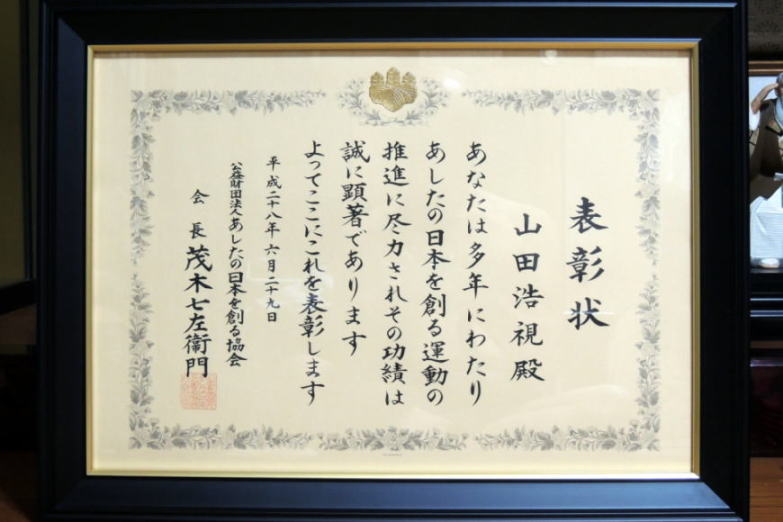 表彰状
山田浩視殿
あなたは多年にわたり
あしたの日本を創る運動の
推進に尽力されその功績は
誠に顕著であります
よってここにこれを表彰します
平成二十八年六月二十九日
公益財団法人あしたの日本を創る協会
会長茂木七左衛門